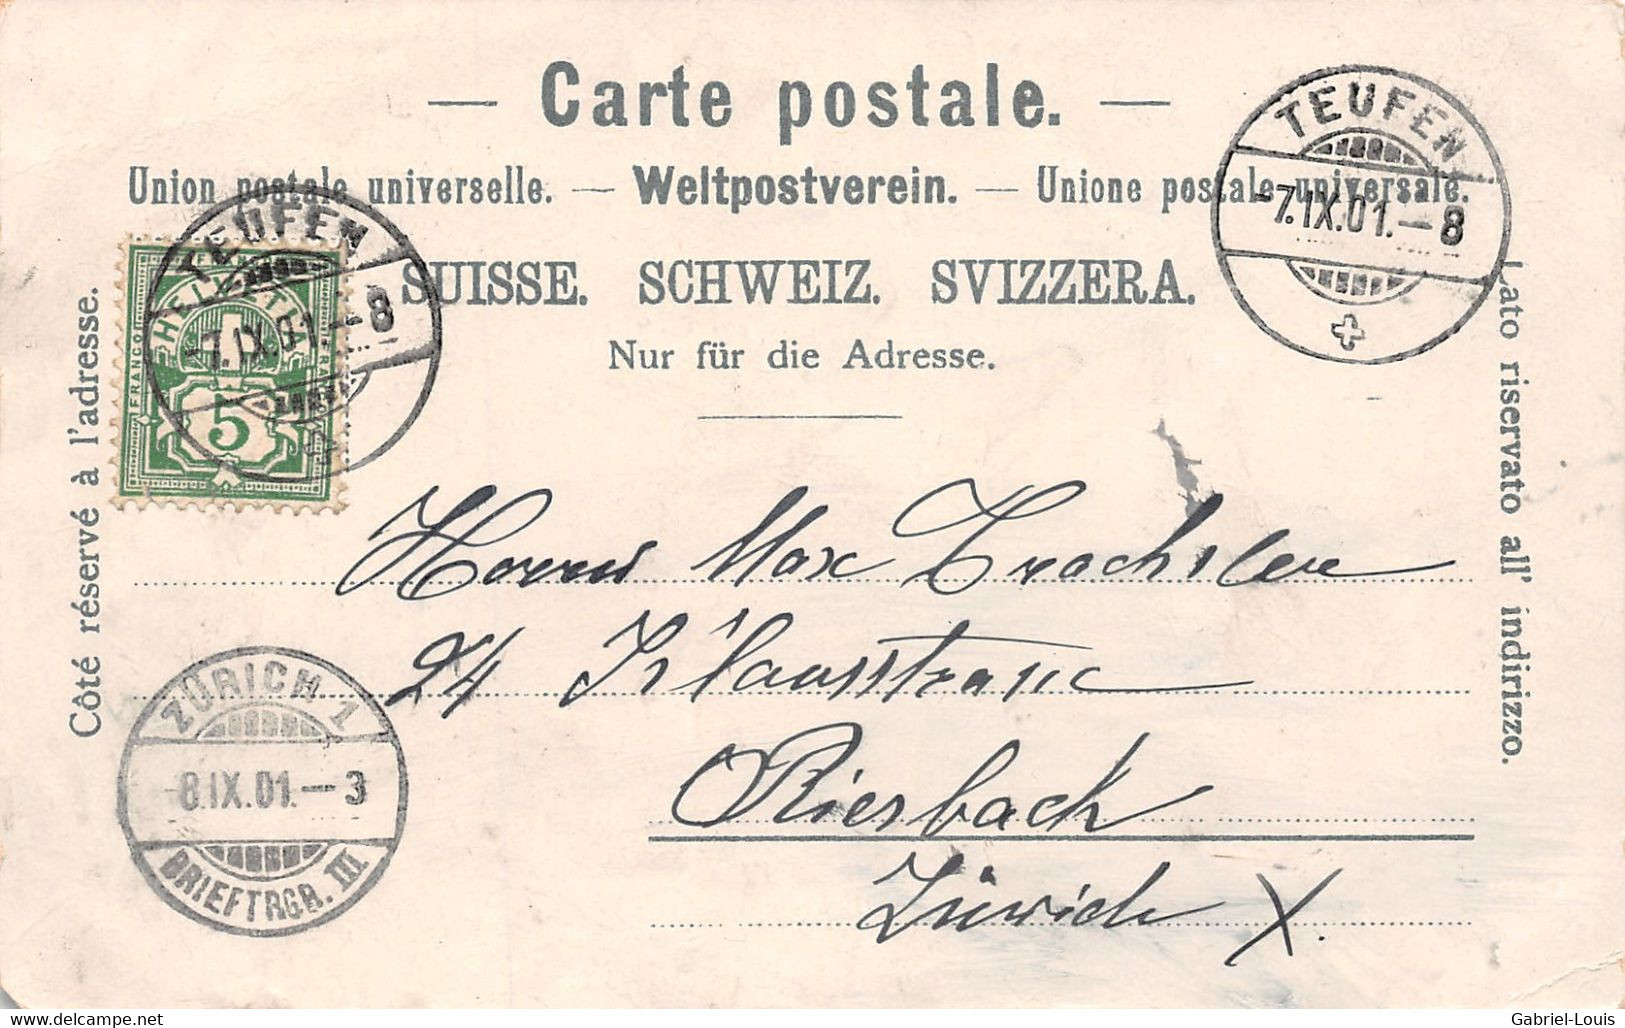 — Carte postale. —
Union postale universelle. — Weltpostverein. — Unione postale universale.
SUISSE. SCHWEIZ. SVIZZERA.
Nur für die Adresse.
Côté réservé à l'adresse.
Lato riservato all' indirizzo.
TEUFEN
-7.IX.01.-8
HELVETIA
FRANCO
5
TEUFEN
-7.IX.01.-8
Herrn Max Trachsler
24 Klausstrasse
Riesbach
Zürich X.
ZÜRICH 1
-8.IX.01.-3
BRIEFTRGR. III.
Gabriel-Louis
delcampe.net